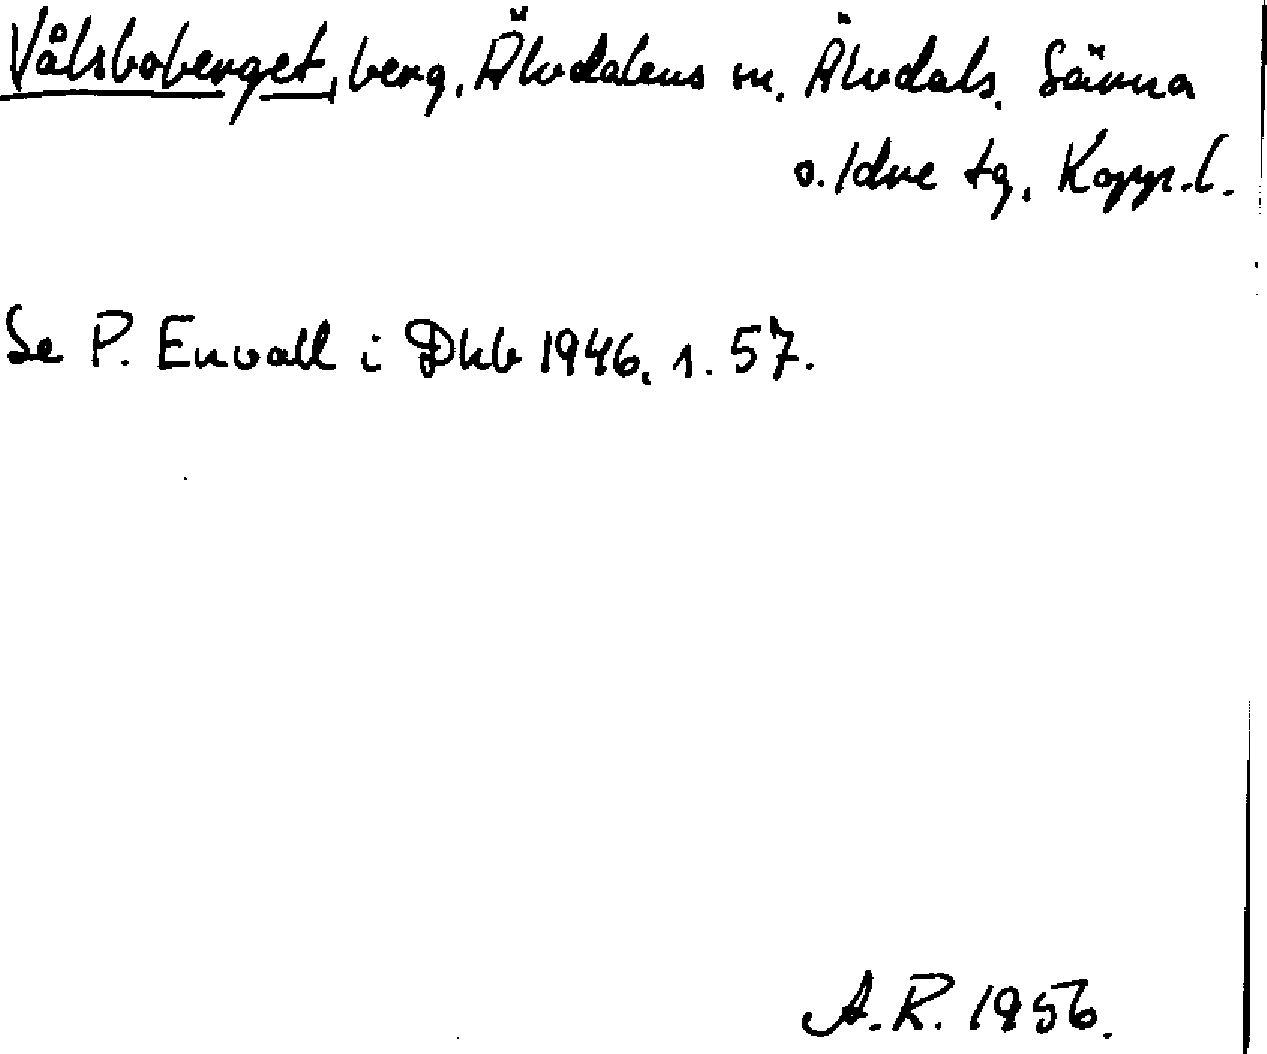 Vålsboberget, berg, Älvdalens sn. Älvdals, Särna
o. Idre tg, Kopp.l.
Se P. Envall i Dhb 1946, s. 57.
A.R. 1956.